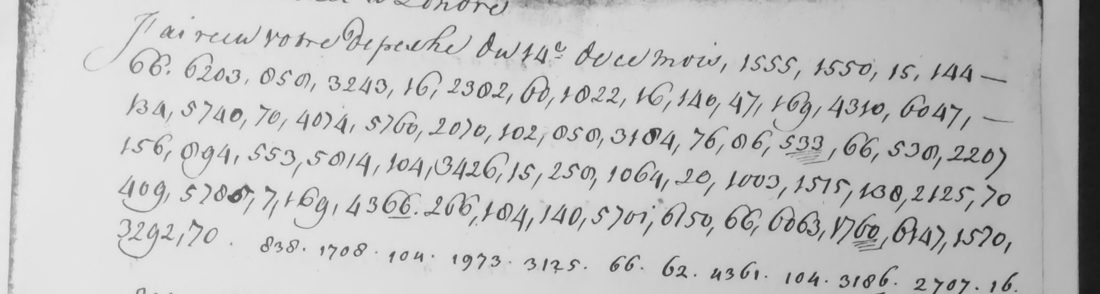 a Londres
J'ai receu votre Depesche du 14e de ce mois, 1555, 1550, 15, 144 —
66. 6203, 850, 3243, 16, 2382, 60, 1822, 16, 140, 47, 169, 4310, 6047, —
134, 5740, 70, 4074, 5760, 2070, 102, 850, 3184, 76, 86, 533, 66, 538, 2207
156, 894, 553, 5814, 104, 3426, 15, 250, 1064, 20, 1003, 1515, 138, 2125, 70
409, 5786, 7, 169, 4366. 266, 184, 140, 5701, 6150, 66, 6063, 1760, 6147, 1570,
3292, 70. 838. 1708. 104. 1973. 3125. 66. 62. 4361. 104. 3186. 2707. 16.